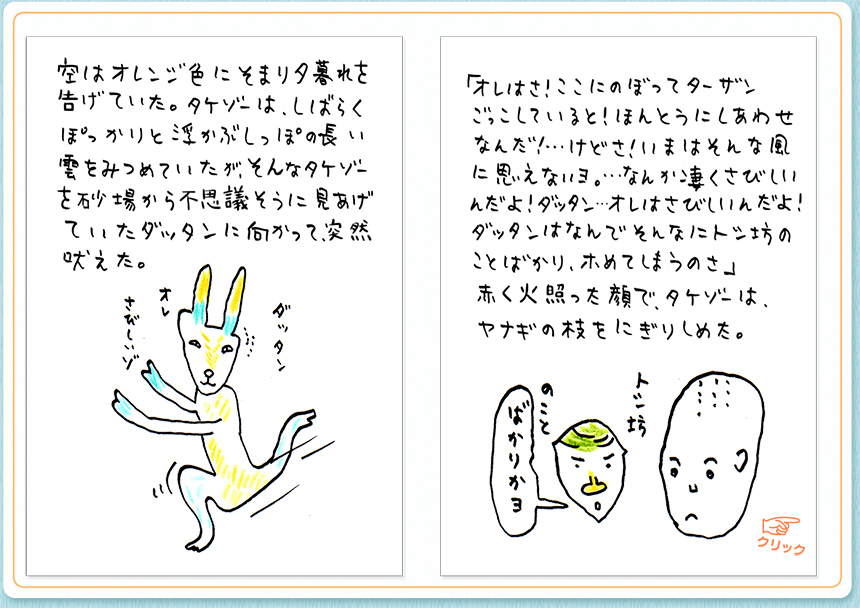 空はオレンジ色にそまり夕暮れを
告げていた。タケゾーは、しばらく
ぽっかりと浮かぶしっぽの長い
雲をみつめていたが、そんなタケゾー
を砂場から不思議そうに見あげ
ていたダッタンに向かって、突然
吠えた。
ダッタン
オレ
さびしいゾ
「オレはさ!ここにのぼってターザン
ごっこしていると!ほんとうにしあわせ
なんだ!…けどさ!いまはそんな風
に思えないヨ。…なんか凄くさびしい
んだよ!ダッタン…オレはさびしいんだよ!
ダッタンはなんでそんなにトン坊の
ことばかり、ホめてしまうのさ」
赤く火照った顔で、タケゾーは、
ヤナギの枝をにぎりしめた。
トン坊
のこと
ばかりかヨ
クリック